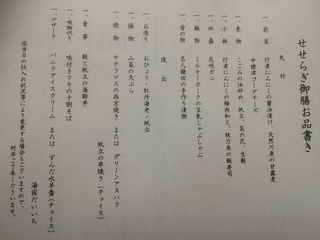 せせらぎ御膳お品書き
先付
一、前菜 行者にんにくの醤油漬け、天然川魚の甘露煮
中標津ゴーダチーズ
一、煮物 こごみの油炒め、帆立、菜の花、生麩
一、小鉢 行者にんにくの梅肉和え、秋刀魚の飯寿司
一、皿盛 花咲ガニ
一、鍋物 ミルキーポークの豆乳しゃぶしゃぶ
一、香の物 名人鎌田の手作り漬物
後出
一、お造り おひょう・牡丹海老・帆立
一、揚物 山菜の天ぷら
一、焼物 サクラマスの西京焼き または グリーンアスパラ
帆立の串焼き(チョイス)
一、食事 鮭と帆立の海鮮丼
一、吸物代り 味付きワカメの十割そば
一、デザート バニラアイスクリーム または ずんだ水羊羹(チョイス)
※当日の仕入れ状況等により変更する場合もございますので、
何卒ご了承くださいませ。
湯宿だいいち